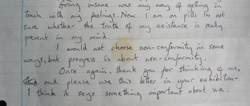 Going insane was my way of getting in
touch with my feelings. Now I am on pills I'm not
sure whether the truth of my existence is really
present in my mind.
I would not choose non-conformity in some
ways, but progress is about non-conformity.
Once again, thank you for thinking of me,
and please use this letter in your exhibition-
I think it says something important about